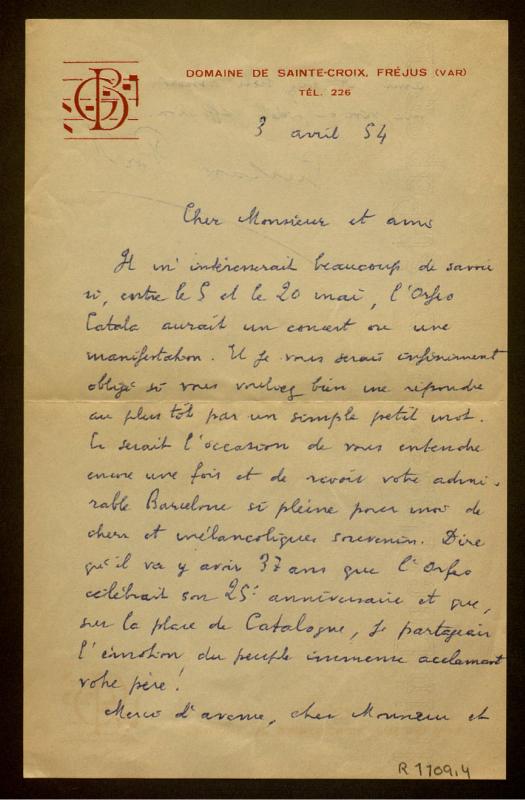 DOMAINE DE SAINTE-CROIX, FRÉJUS (VAR)
TÉL. 226
3 avril 54
Cher Monsieur et ami
Il m'intéresserait beaucoup de savoir
si, entre le 5 et le 20 mai, l'Orfeo
Catala aurait un concert ou une
manifestation. Et je vous serais infiniment
obligé si vous vouliez bien me répondre
au plus tôt par un simple petit mot.
Ce serait l'occasion de vous entendre
encore une fois et de revoir votre admi-
rable Barcelone si pleine pour moi de
chers et mélancoliques souvenirs. Dire
qu'il va y avoir 37 ans que l'Orfeo
célébrait son 25e anniversaire et que,
sur la place de Catalogne, je partageais
l'émotion du peuple immense acclamant
votre père!
Merci d'avance, cher Monsieur et
R 1109,4